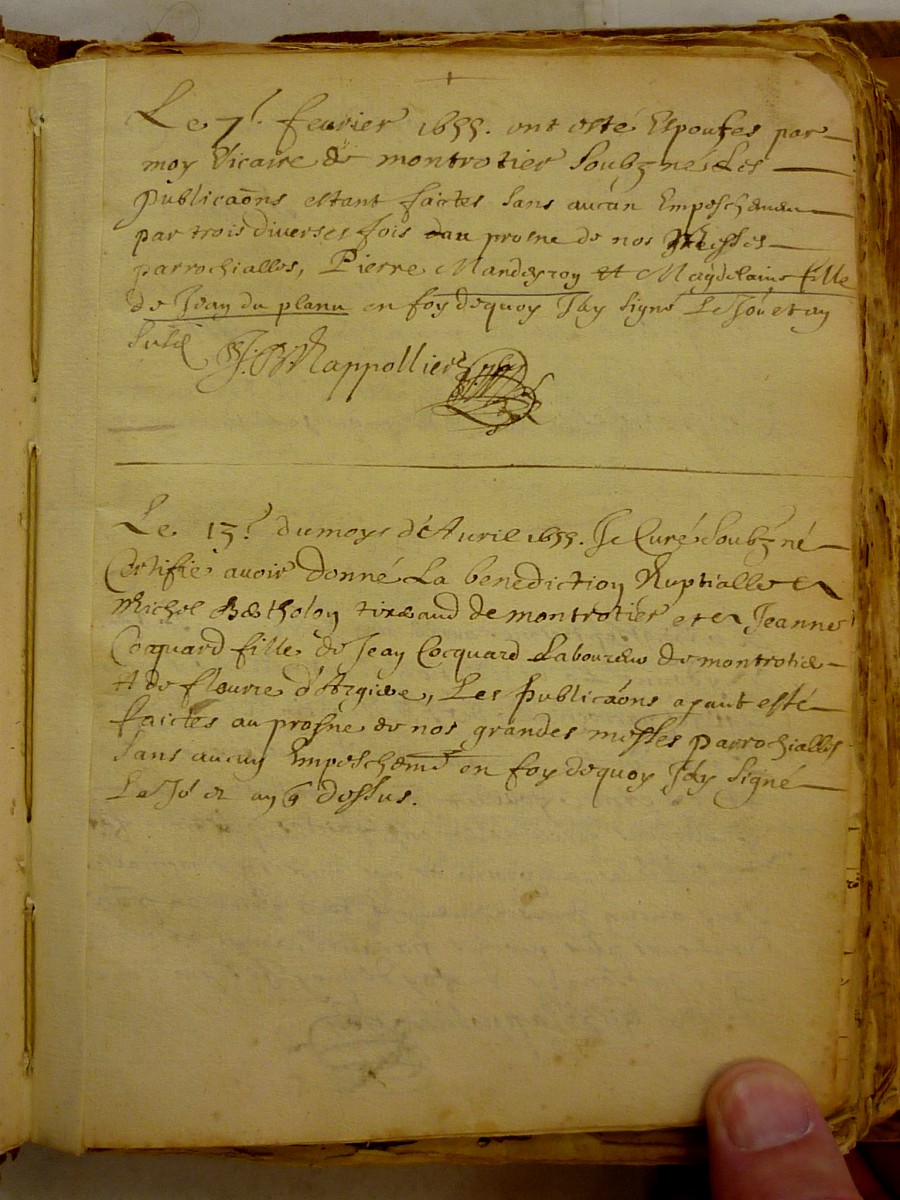 Le 7.e feurier 1655. ont esté Espouses par
moy Vicaire de montrotier soubzné Les
Publicaõns estant faictes sans aucun Empeschemen
par trois diverses fois au prosne de nos Messes
parrochialles, Pierre Mandesroy et Magdelaine fille
de Jean du planu en foy dequoy J'ay signé Le Jour et an
susd
Mappollier
Le 13.e du moys d'Auril 1655. Je Curé Soubzné
Certifie auoir donné La benediction Nuptialle
Michel Bertholoy tixerand de montrotier et a Jeanne
Cocquard fille de Jean Cocquard Laboureur de montrotier
et de fleurie d'Argiere, Les Publicaõns ayant esté
faictes au prosne de nos grandes messes parrochialles
Sans aucun Empeschemẽ en foy dequoy J'ay Signé
Le Jór et an q dessus.